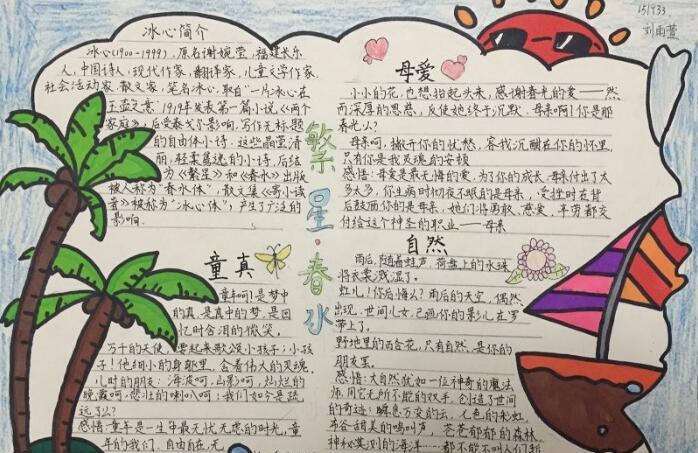 151933
刘雨萱
冰心简介
冰心(1900-1999),原名谢婉莹,福建长乐
人,中国诗人,现代作家,翻译家,儿童文学作家,
社会活动家,散文家,笔名冰心,取自"一片冰心在
玉壶"之意.1919年发表第一篇小说《两个
家庭》,后受泰戈尔影响,写作无标题
的自由体小诗.这些晶莹清
丽,轻柔隽逸的小诗,后结
为《繁星》和《春水》出版
被人称为"春水体",散文集《寄小读
者》被称为"冰心体",产生了广泛的
影响.
繁星·春水
母爱
小小的花,也想抬起头来,感谢春光的爱——然
而深厚的恩慈,反使她终于沉默.母亲啊!你是那
春光么?
母亲呵,撇开你的忧愁,容我沉酣在你的怀里,
只有你是我灵魂的安顿
感悟:母爱是最无悔的爱,为了你的成长,母亲付出了太
多太多,你生病时彻夜不眠的是母亲,受挫时在背
后鼓励你的是母亲,她们将勇敢、慈爱、辛劳都交
付给这个神圣的职业——母亲
童真
童年呵!是梦中
的真,是真中的梦,是回
忆时含泪的微笑.
万千的天使,要起来歌颂小孩子;小孩
子!他细小的身躯里,含着伟大的灵魂.
儿时的朋友:海波呵,山影呵,灿烂的
晚霞呵,悲壮的喇叭呵;我们如今是疏
远了么?
感悟:童年是一生中最无忧无虑的时光,童
年的我们,自由自在,无
自然
雨后,随着蛙声,荷盘上的水珠
将衣裳溅湿了.
虹儿!你后悔么?雨后的天空,偶然
出现,世间儿女,已画你的影儿在罗
带上了.
野地里的百合花,只有自然,是你的
朋友罢.
感悟:大自然犹如一位神奇的魔法
师,用它无所不能的双手,创造了世间
的奇迹:瞬息万变的云,七色的彩虹,
布谷甜美的鸣叫声,苍苍郁郁的森林,
神秘莫测的海洋……都不能不叫人们新